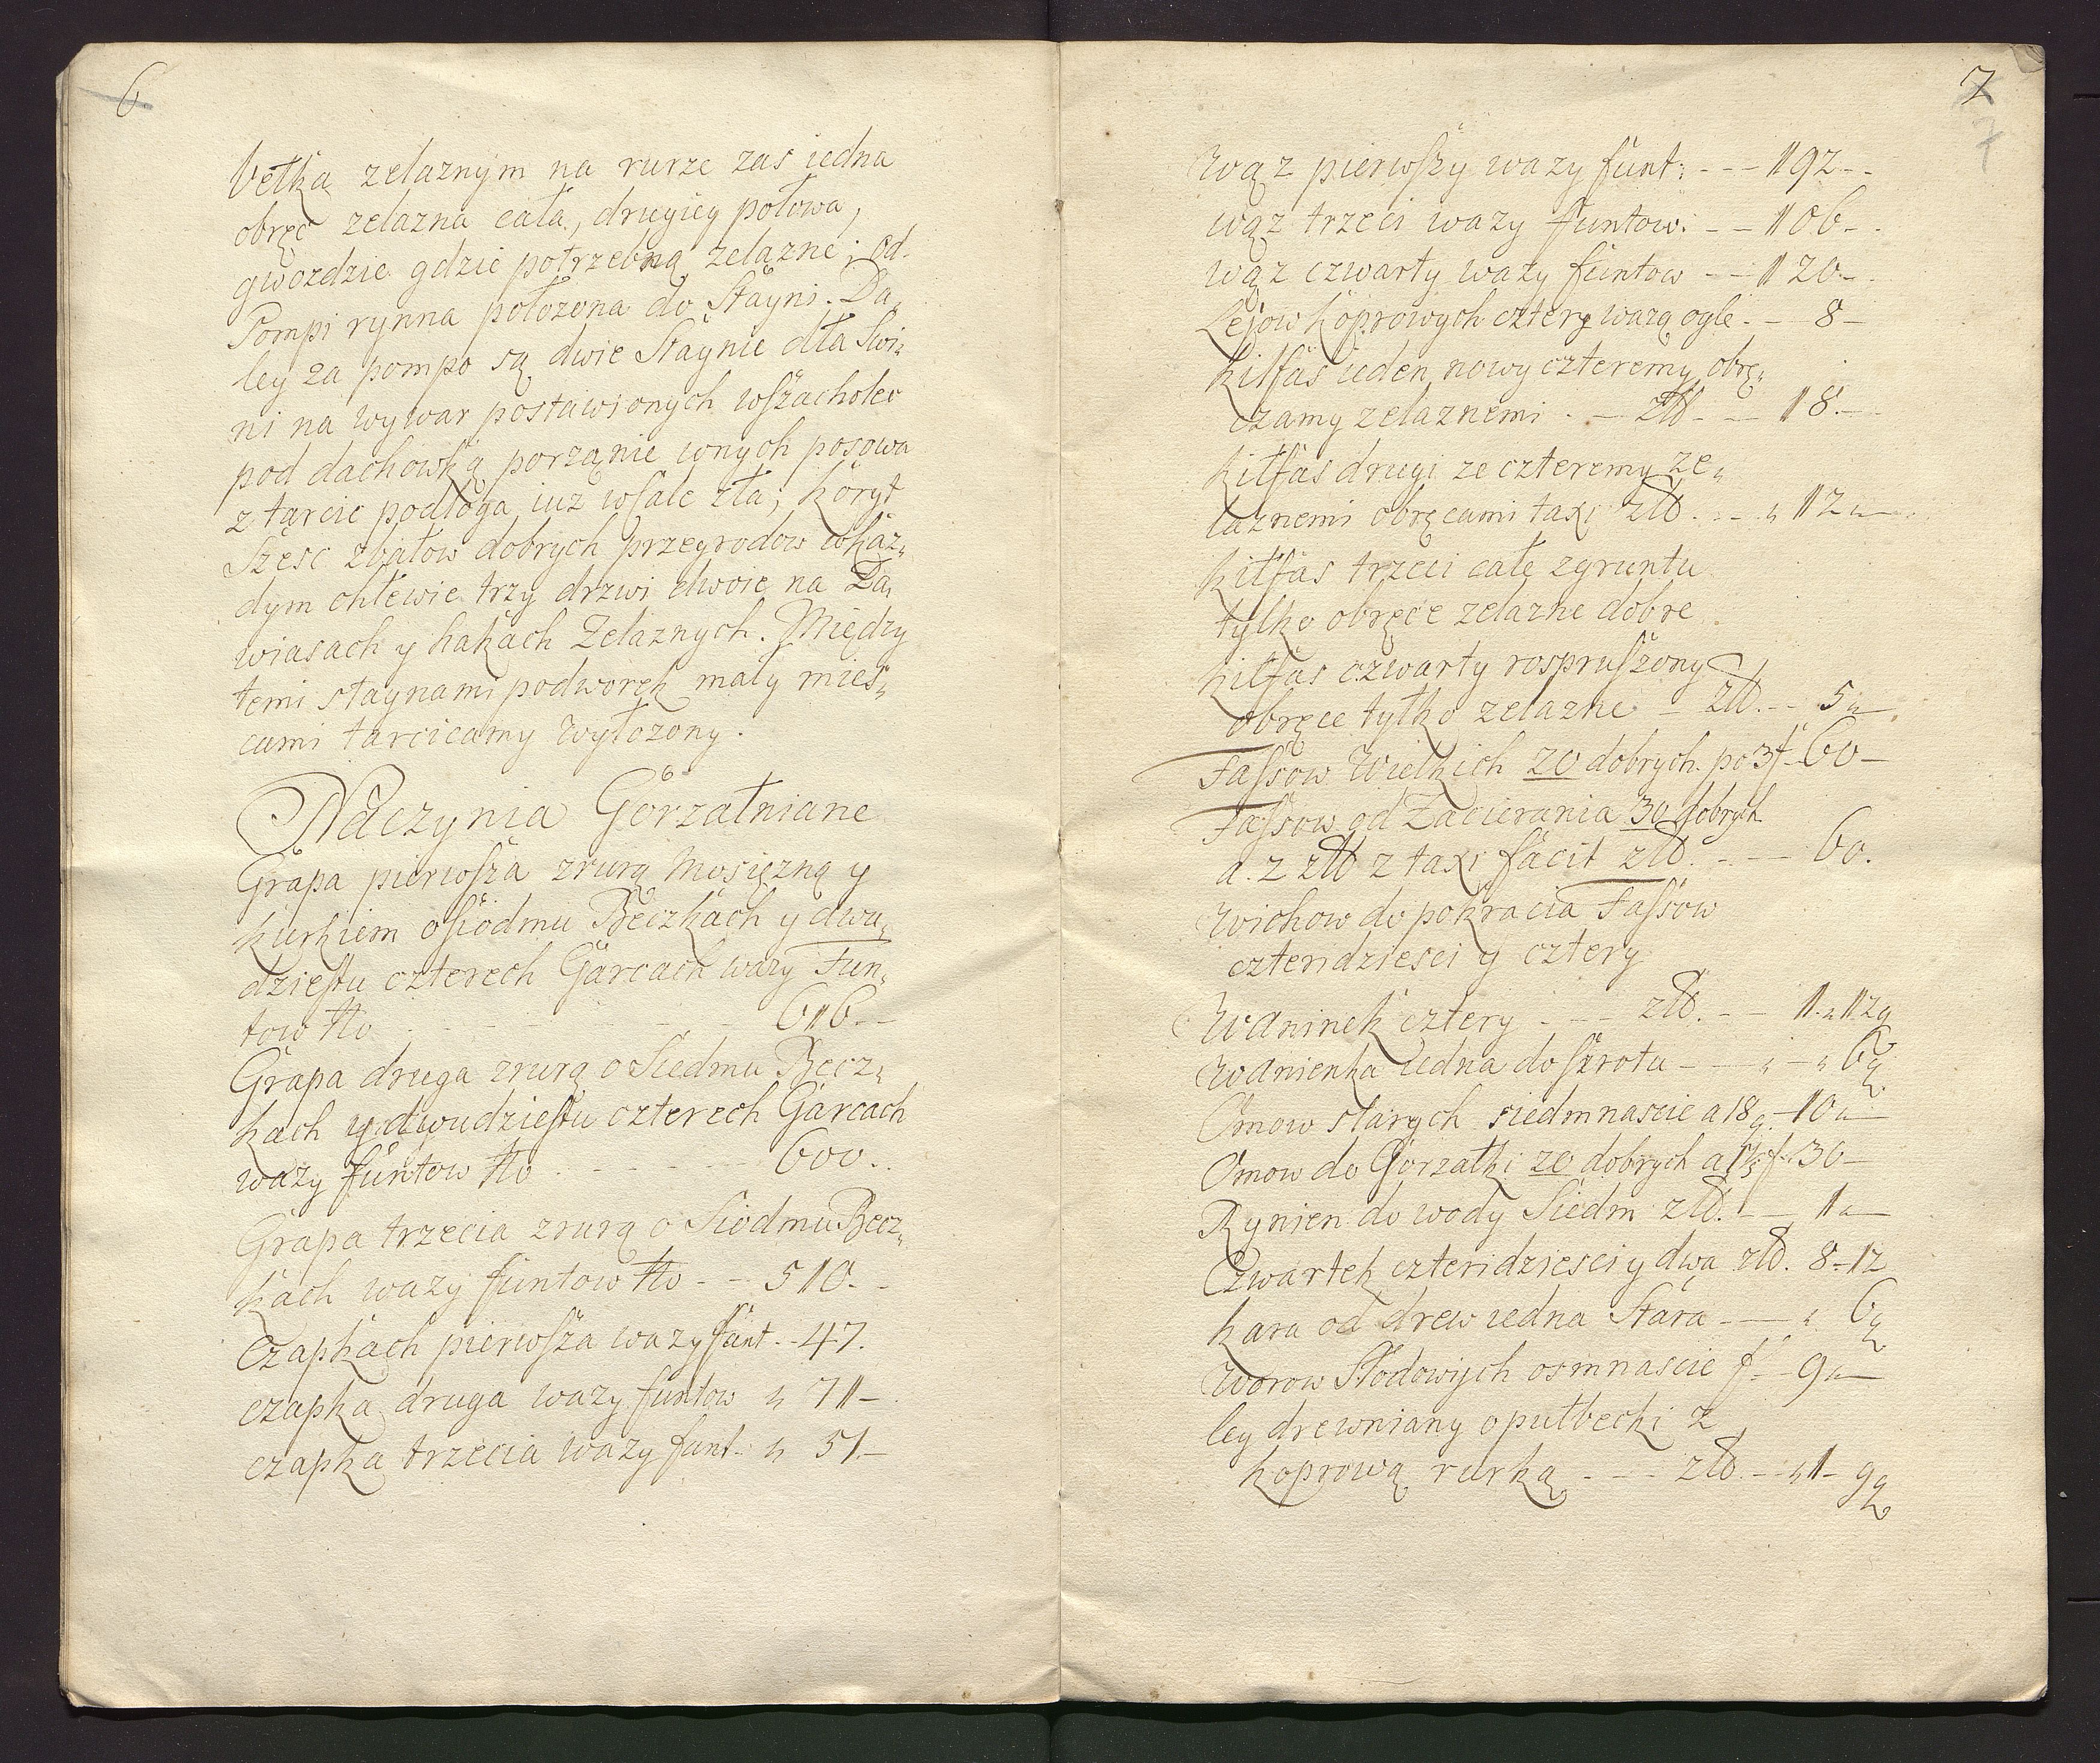 6.
Vetką zelaznym na rurze zas iedna
obręć zelazna cała, drugiey połowa,
gwozdzie gdzie potrzebną zelazne; od
Pompi rynna położona do Stayni. Da„
ley za pompo są dwie Staynie dła Swi„
ni na wywar postawionych wszacholec
pod dachowką porząnie wnych posowa
z tarcic podłoga iuz wcale zła; Koryt
Szesc zbałow dobrych przegrodow wkaz„
dym chłewie trzy drzwi dwoie na Za„
wiasach y hakach Zelaznych. Między
temi staynami podworek mały mies„
cami tarcicamy wyłozony.
Naczynia Gorzałniane
Grapa pierwsza z rurą Mosięzną y
kurkiem o siodmu Beczkach y dwu„
dziestu czterech Garcach wazy Fun„
tow ℔ - - - - - - 616. -
Grapa druga z rurą o Siedmu Becz„
kach y dwudziestu czterech Garcach
wazy funtow ℔ - - - - - 600..
Grapa trzecia z rurą o Siodmu Becz„
kach wazy funtow ℔ - - 510. -
Czapkach pierwsza wazy funt. - 47.
czapka druga wazy funtow „ 71 -
czapka trzecia wazy funt. „ 51. -
7
7
Wąz pierwszy wazy funt: - - - 192 - -
wąz trzeci wazy funtow: - - 106 - .
wąz czwarty wazy funtow - - 120. -
Lejow Koprowych cztery wazą ogle. - 8 -
Kilfas ieden nowy czteremy obrę„
czamy zelaznemi . - zł - - 18. -
Kilfas drugi ze czteremy ze„
laznemi obręcami taxi zł. - - „ 12 „ -
Kilfas trzeci całe zgruntu
tylko obręce zelazne dobre
Kilfas czwarty rospruszony
obręce tylko zelazne - zł. - - 5 „ -
Fassow Wielkich 20 dobrych. po 3 f - 60 -
Fassow od Zacierania 30 dobrych
a. 2 zł z taxi facit zł. - - - 60.
Wichow do pokracia Fassow
czteridziesci y cztery
Waninek cztery - - - zł. - - 1. „ 12 g
Wanienka iedna do szrotu - - - „ - „ 6 g
Omow starych siedmnascie a 18 g. - 10 „ -
Omow do Gorzałki 20 dobrych a 1½ f. 30 -
Rynien do wody Siedm zł. - - 1 „ -
Czwartek czteridziesci y dwa zł. 8 - 12
Kara od drew iedna Stara - - - „ 6 g
Worow Słodowych osmnascie f - - 9 „ -
ley drewniany o pułbecki z
koprową rurką - - - zł. - - „ 1 - 9 g